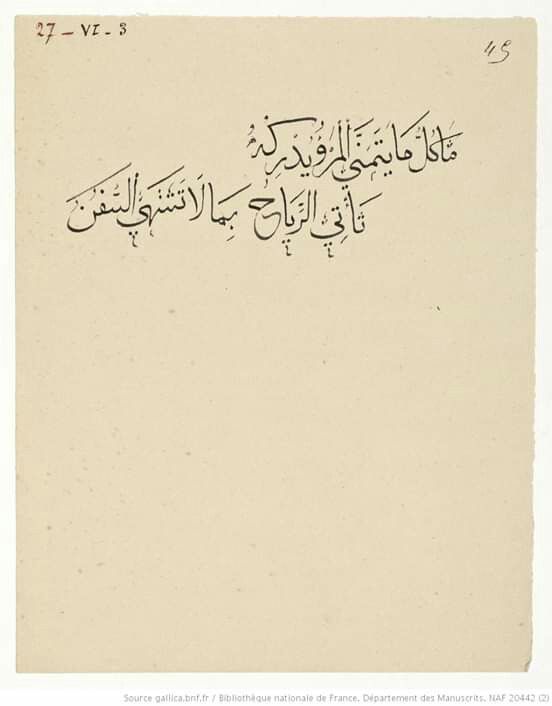 27 - VI - 3
49
مَا كُلُّ مَا يَتَمَنَّي المَرْؤُ يُدْرِكُهُ
تَأتِي الرِّيَاحُ بِمَا لَا تَشْتَهِي السُّفُنُ
Source gallica.bnf.fr / Bibliothèque nationale de France. Département des Manuscrits. NAF 20442 (2)